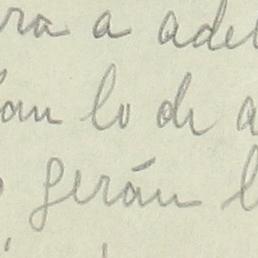 ra a adel
an lo di a
gerán l